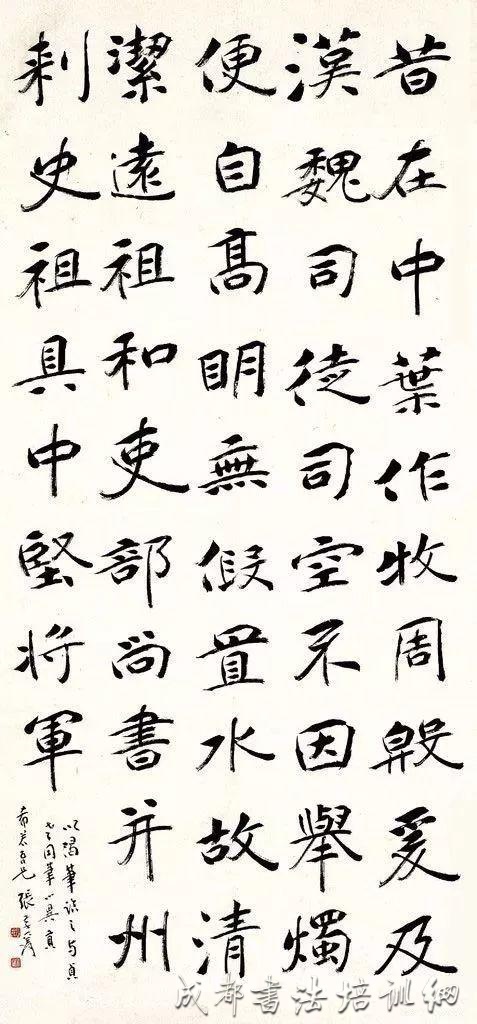 昔在中葉作牧周殷爰及
漢魏司徒司空不因舉燭
便自高明無假置水故清
潔遠祖和吏部尚書并州
刺史祖具中堅將軍
以渴筆臨之与真
同筆
張
成都書法培訓網